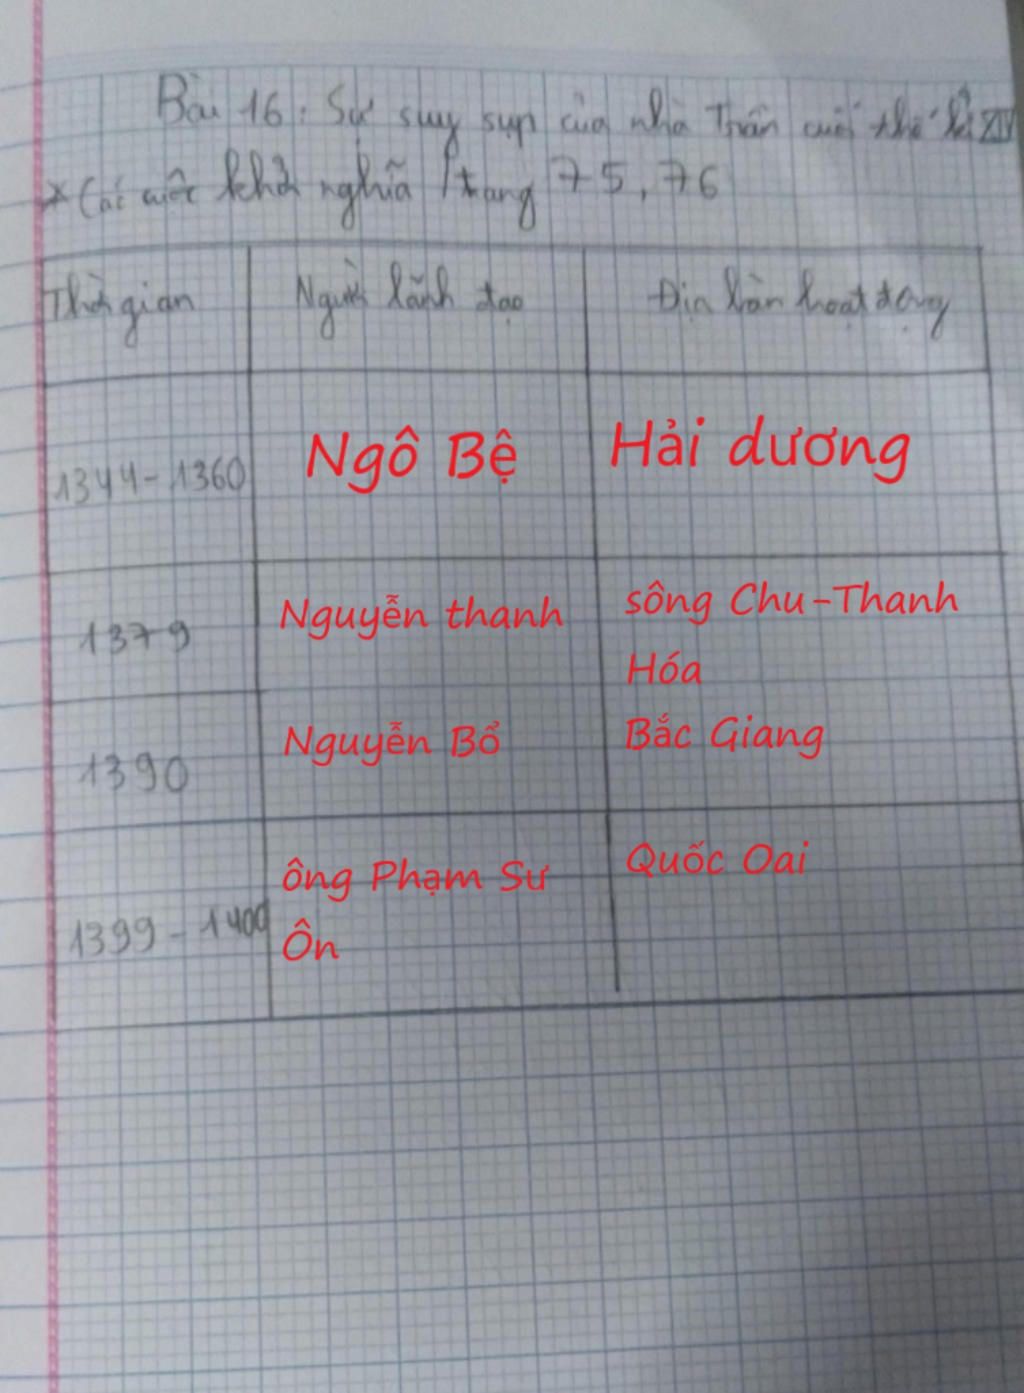 Bài 16: Sự suy sụp của nhà Trần cuối thế kỉ XIV
* Các cuộc khởi nghĩa / trang 75, 76
Thời gian Người lãnh đạo Địa bàn hoạt động
1344-1360 Ngô Bệ Hải dương
1379 Nguyễn thanh sông Chu-Thanh
Hóa
1390 Nguyễn Bổ Bắc Giang
1399-1400 ông Phạm Sư Quốc Oai
Ôn